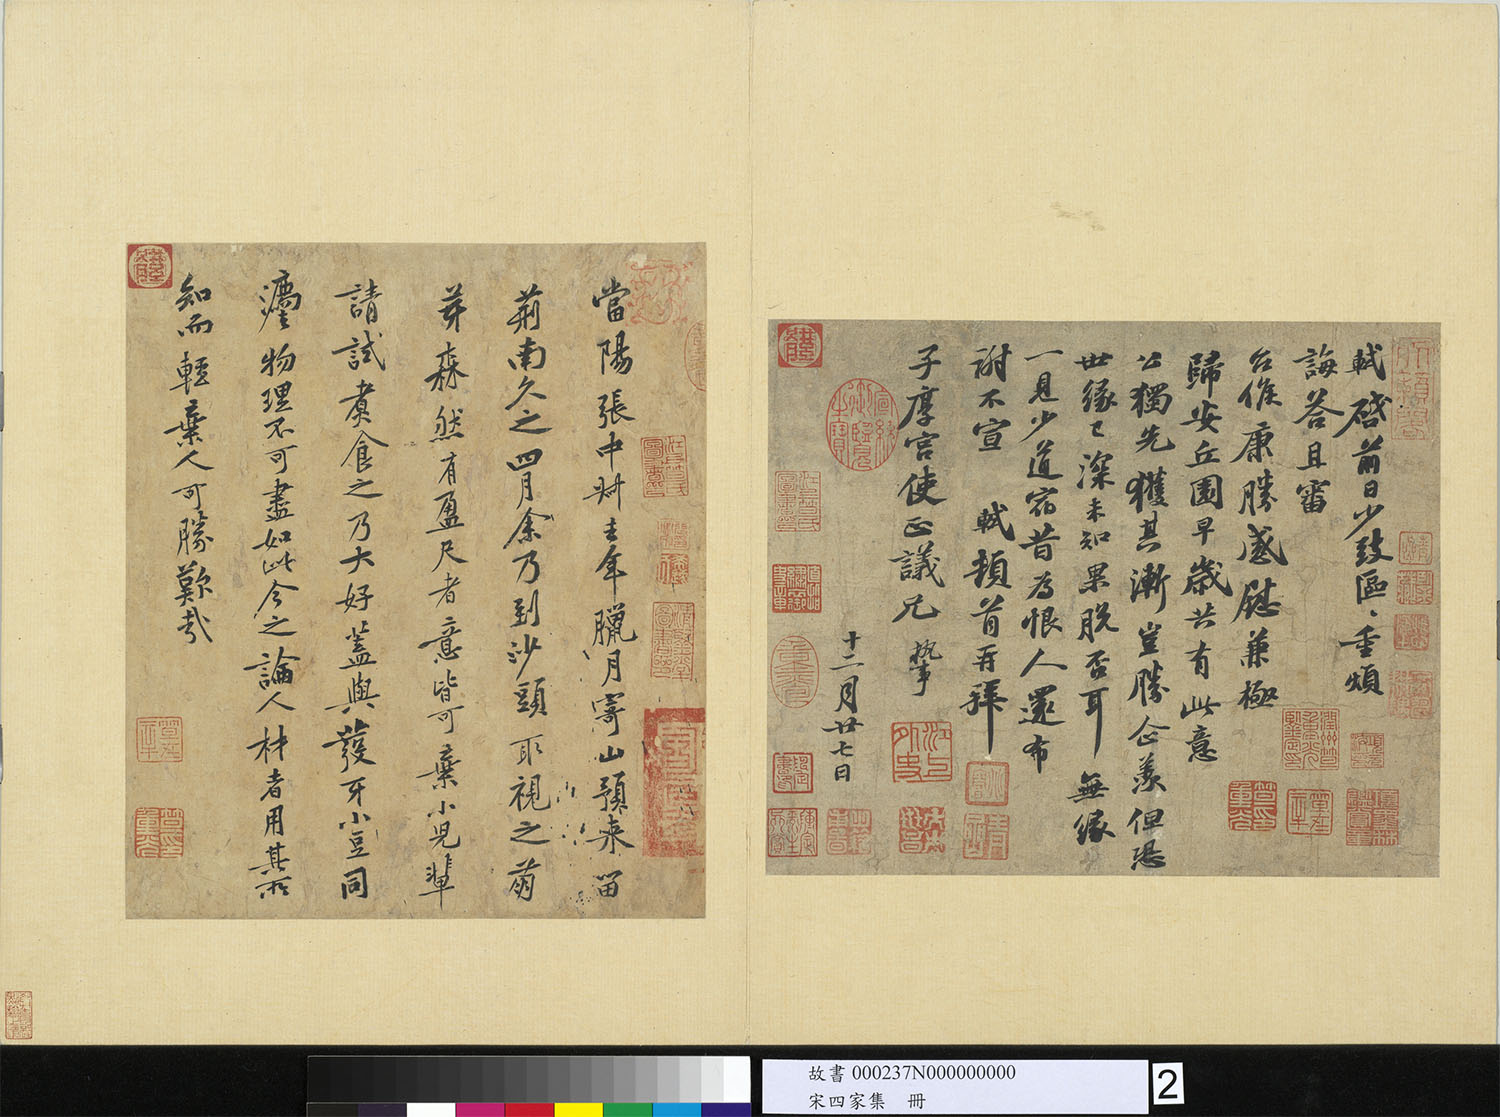 軾啓前日少致區〻重煩
誨荅且審
台候康勝感慰兼極
歸安丘園早歲共有此意
公獨先獲其漸豈勝企羨但恐
世緣已深未知果脫否耳無緣
一見少道宿昔為恨人還布
謝不宣 軾頓首再拜
子厚宮使正議兄執事
十二月廿七日
當陽張中叔去年臘月寄山預來留
荊南久之四月余乃到沙頭取視之萌
芽森然有盈尺者意皆可棄小兒輩
請試煑食之乃大好蓋與發牙小豆同
物理不可盡如此今之論人材者用其所
知而輕棄人可勝歎哉
故書 000237N000000000
宋四家集 冊
2